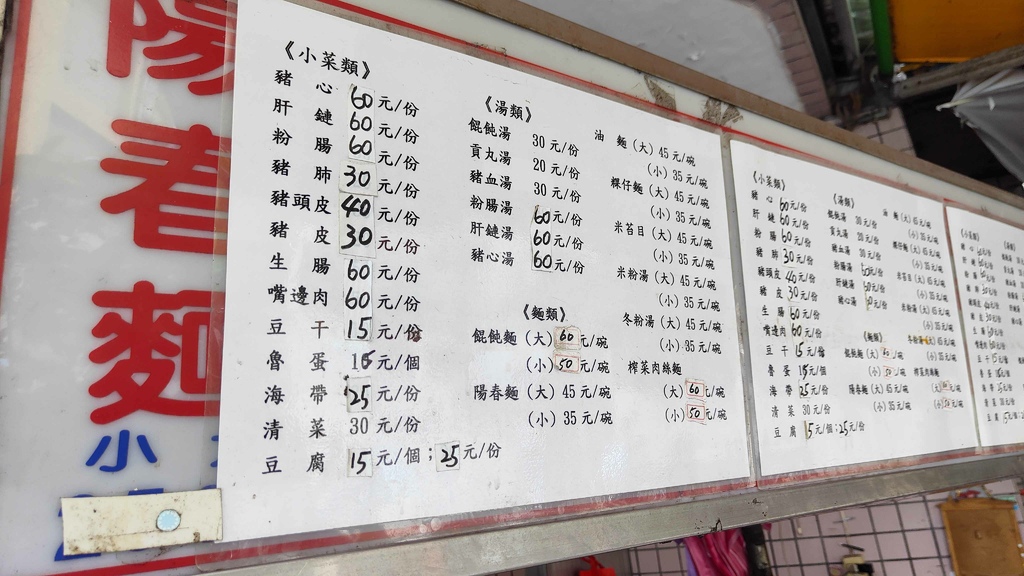 陽春麵
小
《小菜類》
豬心 60元/份
肝鏈 60元/份
粉腸 60元/份
豬肺 30元/份
豬頭皮 40元/份
豬皮 30元/份
生腸 60元/份
嘴邊肉 60元/份
豆干 15元/份
魯蛋 15元/個
海帶 25元/份
清菜 30元/份
豆腐 15元/個；25元/份
《湯類》
餛飩湯 30元/份
貢丸湯 20元/份
豬血湯 30元/份
粉腸湯 60元/份
肝鏈湯 60元/份
豬心湯 60元/份
《麵類》
餛飩麵(大) 60元/碗
(小) 50元/碗
陽春麵(大) 45元/碗
(小) 35元/碗
油麵(大) 45元/碗
(小) 35元/碗
粿仔麵(大) 45元/碗
(小) 35元/碗
米苔目(大) 45元/碗
(小) 35元/碗
米粉湯(大) 45元/碗
(小) 35元/碗
冬粉湯(大) 45元/碗
(小) 35元/碗
榨菜肉絲麵
(大) 60元/碗
(小) 50元/碗
《小菜類》
豬心 60元/份
肝鏈 60元/份
粉腸 60元/份
豬肺 30元/份
豬頭皮 40元/份
豬皮 30元/份
生腸 60元/份
嘴邊肉 60元/份
豆干 15元/份
魯蛋 15元/個
海帶 25元/份
清菜 30元/份
豆腐 15元/個；25元/份
《湯類》
餛飩湯 30元/份
貢丸湯 20元/份
豬血湯 30元/份
粉腸湯 60元/份
肝鏈湯 60元/份
豬心湯 元/份
《麵類》
餛飩麵(大) 60元/碗
(小) 50元/碗
陽春麵(大) 45元/碗
(小) 35元/碗
油麵(大) 45元/碗
(小) 35元/碗
粿仔麵(大) 45元/碗
(小) 35元/碗
米苔目(大) 45元/碗
(小) 35元/碗
米粉湯(大) 45元/碗
(小) 35元/碗
冬粉湯(大) 45元/碗
(小) 35元/碗
榨菜肉絲麵
(大) 60元/碗
(小) 50元/碗